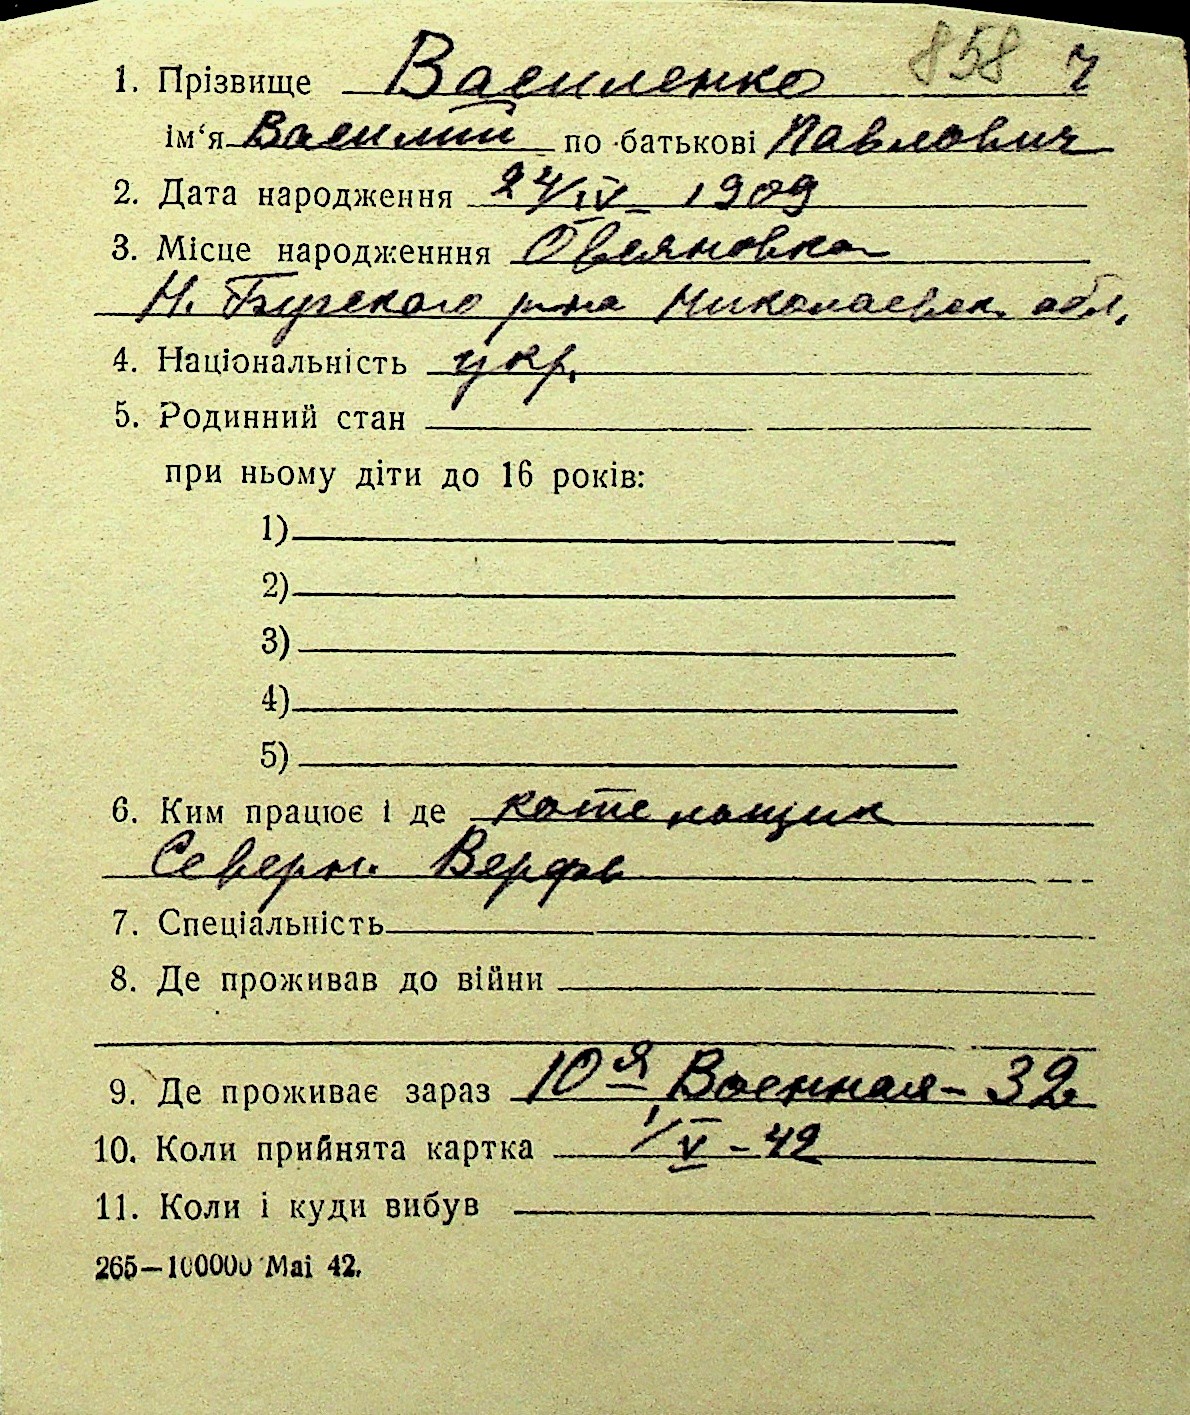 858 ч
1. Прізвище Василенко
ім‘я Василий по батькові Павлович
2. Дата народження 24/IV 1909
3. Місце народженння Овсяновка
Н. Бугского р-на Николаевск. обл.
4. Національність укр.
5. Родинний стан
при ньому діти до 16 років:
1)
2)
3)
4)
5)
6. Ким працює і де котельщик
Северн. Верфь
7. Спеціальність
8. Де проживав до війни
9. Де проживає зараз 10я Военная - 32
10. Коли прийнята картка 1/V - 42
11. Коли і куди вибув
265—100000 Mai 42.